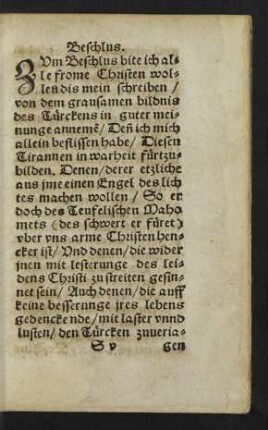 Beschlus.
ZVm Beschlus bite ich al-
le frome Christen wol-
len dis mein schreiben /
von dem grausamen bildnis
des Türckens in guter mei-
nunge annemē / Deñ ich mich
allein beflissen habe / Diesen
Tirannen in warheit fürtzu-
bilden. Denen / derer etzliche
aus jme einen Engel des lich
tes machen wollen / So er
doch des Teufelischen Maho
mets (des schwert er füret)
vber vns arme Christen hen-
cker ist / Vnd denen / die wider
jnen mit lesterunge des lei-
dens Christi zu streiten gesin-
net sein / Auch denen / die auff
keine besserunge jres lebens
gedenckende / mit laster vnnd
lusten / den Türcken zuueria-
S v gen